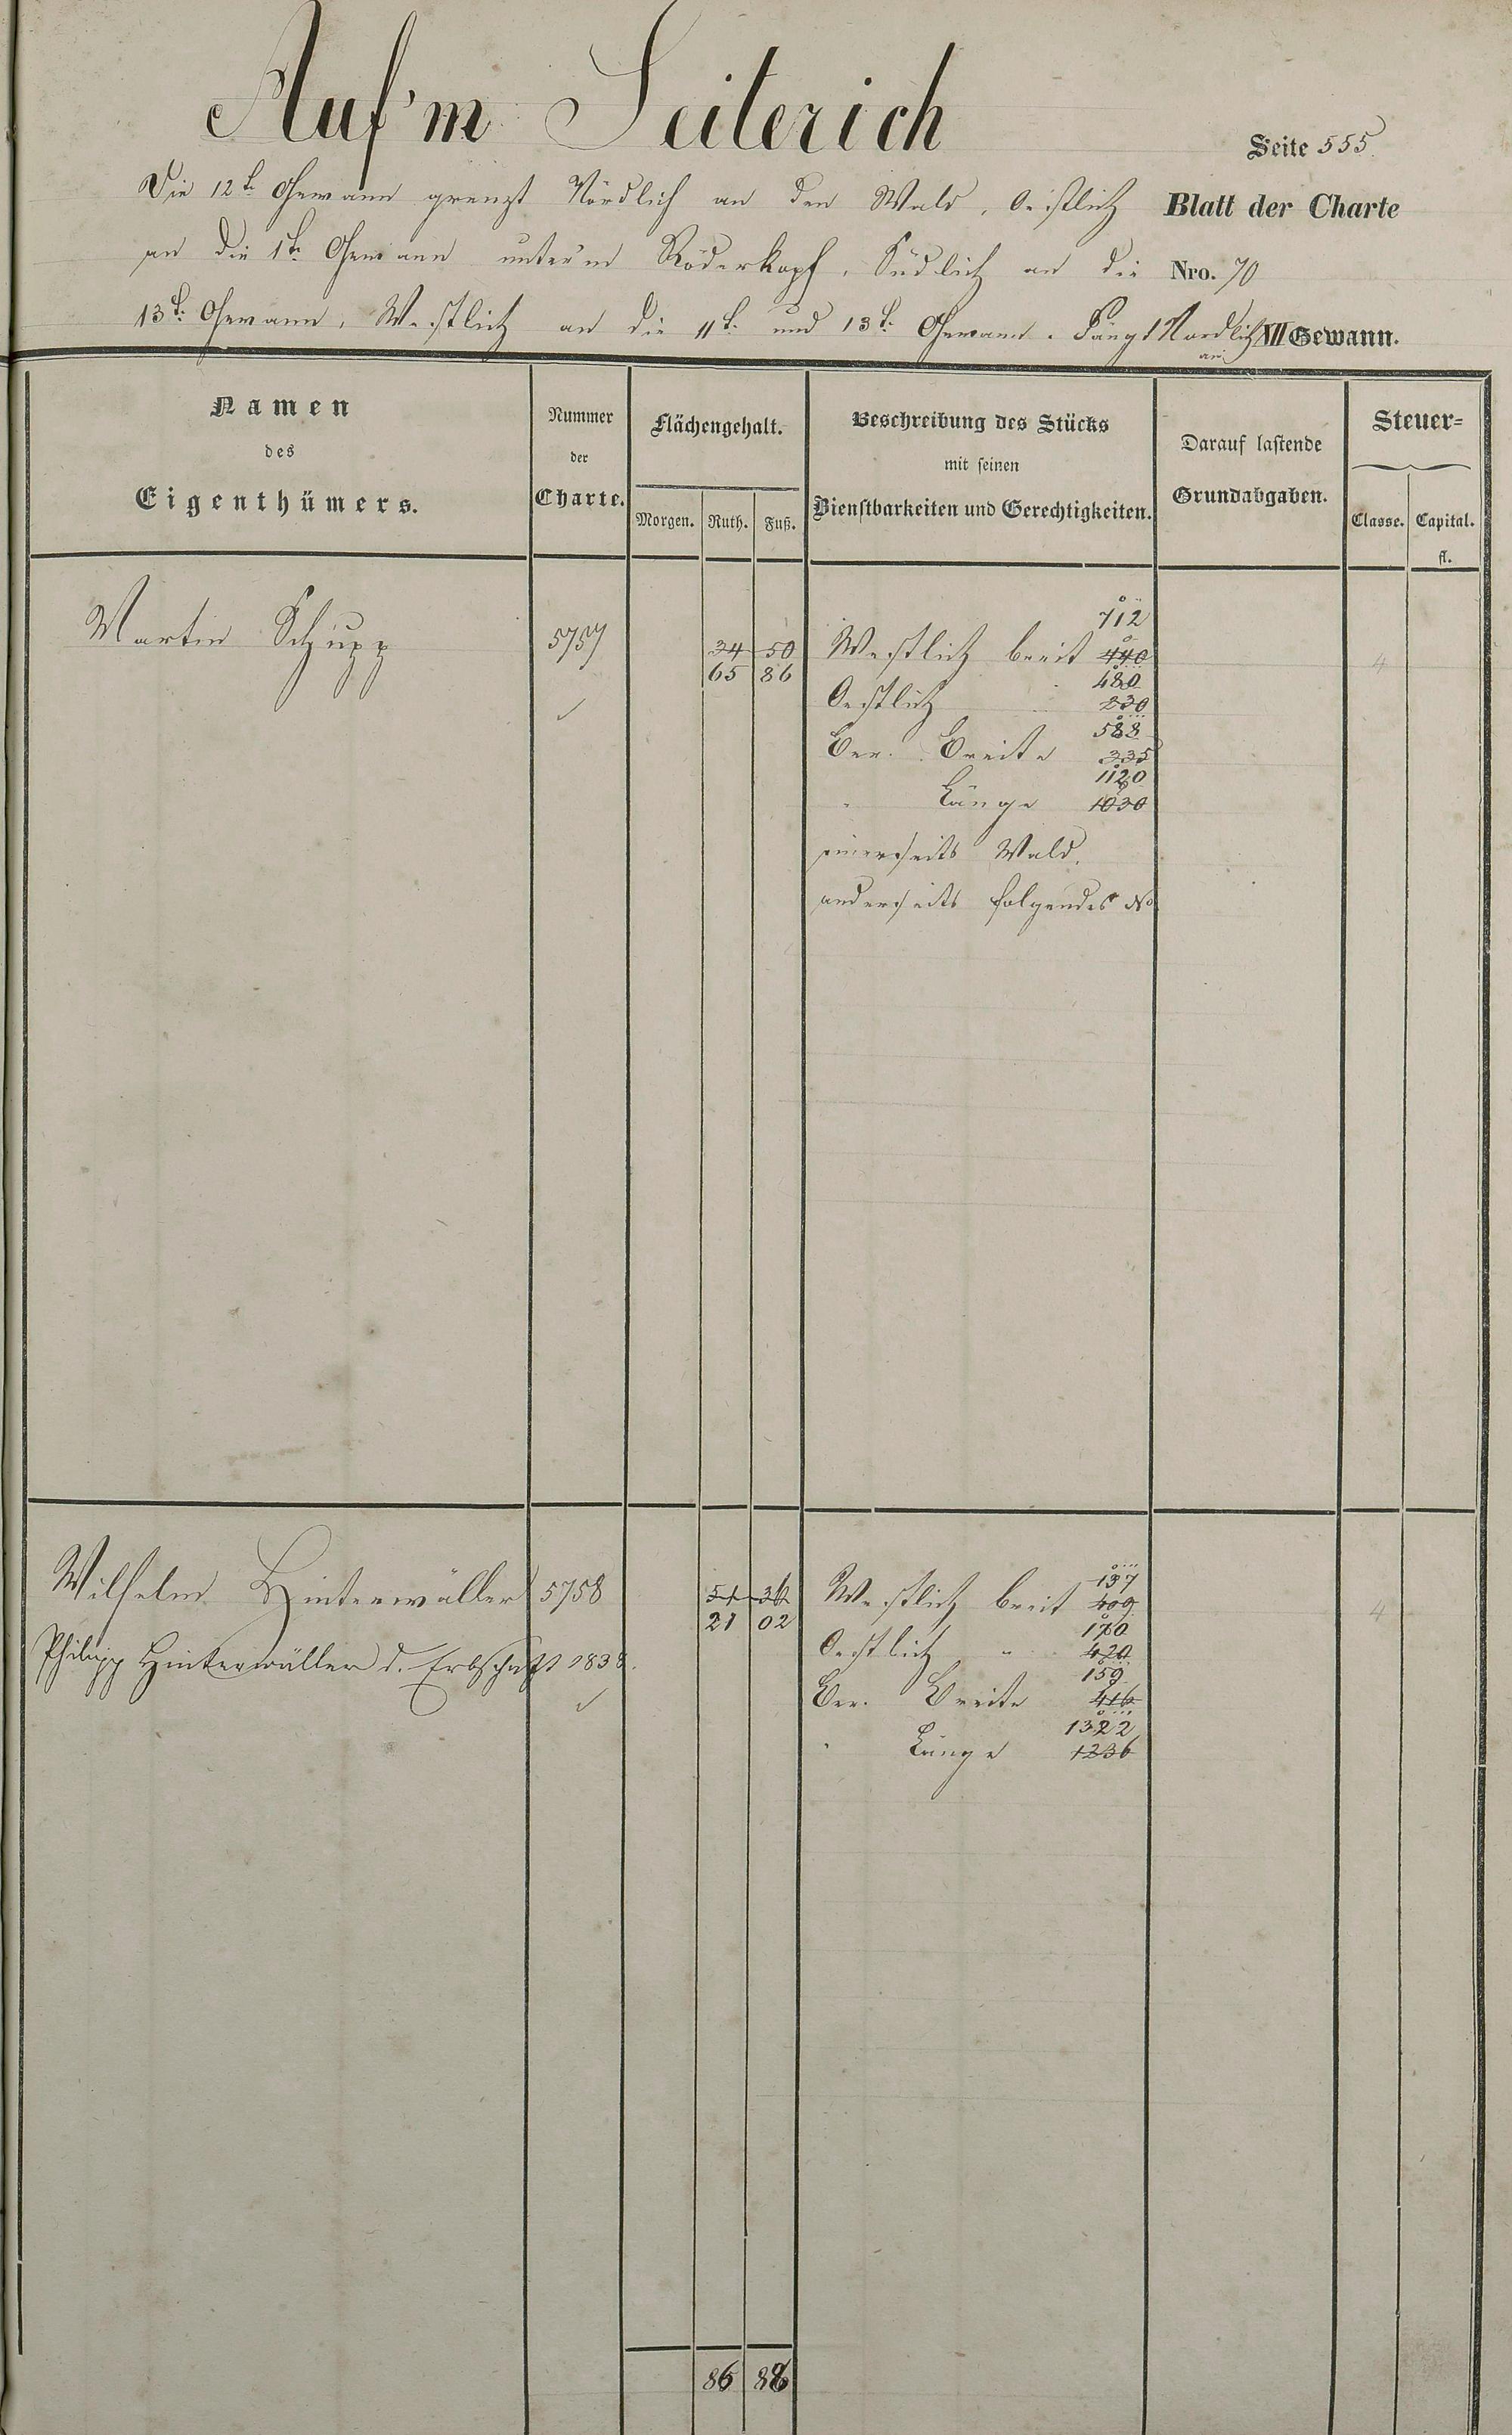 Auf'm Seiterich
Seite 555.
Die 12te Gewann grenzt Nördlich an den Wald, Oestlich
Blatt der Charte
an die 1te Gewann unter'm Röderkopf, Südlich an die
Nro. 70
13te Gewann, Westlich an die 11te und 13te Gewann. Fängt Nordlich an
XII Gewann.
Namen
des
Eigenthümers.
Nummer
der
Charte.
Flächengehalt.
Morgen. Ruth. Fuß.
Beschreibung des Stücks
mit seinen
Dienstbarkeiten und Gerechtigkeiten.
Darauf lastende
Grundabgaben.
Steuer=
Classe. Capital.
fl.
712
Martin Schupp 5757 34 50 Westlich breit 440 4
65 86 480
Oestlich 230
588
Ber. Breite 335
1120
" Länge 1030
einerseits Wald,
anderseits folgendes No
137
Wilhelm Hinterwäller 5758 51 36 Westlich breit 409 4
21 02 170
Philipp Hinterwäller d. Erbschaft 1838. Oestlich " 420
159
Ber. Breite 416
1322
" Länge 1236
86 88